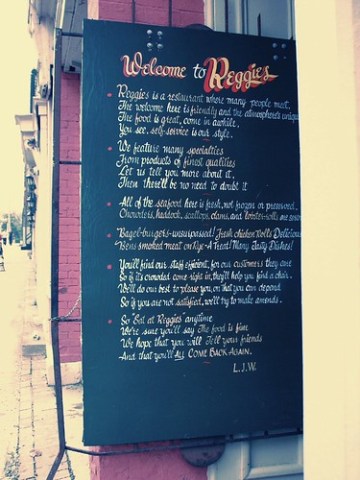 Welcome to Reggie's
Reggie's is a restaurant where many people meet,
The welcome here is friendly and the atmosphere's unique
The food is great, come in awhile,
You see, self-service is our style.
We feature many specialties
From products of finest qualities
Let us tell you more about it,
Then there'll be no need to doubt it
All of the seafood here is fresh, not frozen or preserved,
Chowders, haddock, scallops, clams, and lobster-rolls are
Bagel-burgers-unsurpassed! Fresh chicken Rolls Delicious
Bens smoked meat on Rye-A Treat! Many Tasty Dishes!
You'll find our staff efficient, for our customers they care
So if it's crowded come right in, they'll help you find a chair.
We'll do our best to please you, on that you can depend
So if you are not satisfied, we'll try to make amends.
So "Eat at Reggies" anytime
We're sure you'll say The food is fine
We hope that you will Tell your friends
And that you'll all COME BACK AGAIN.
L.J.W.